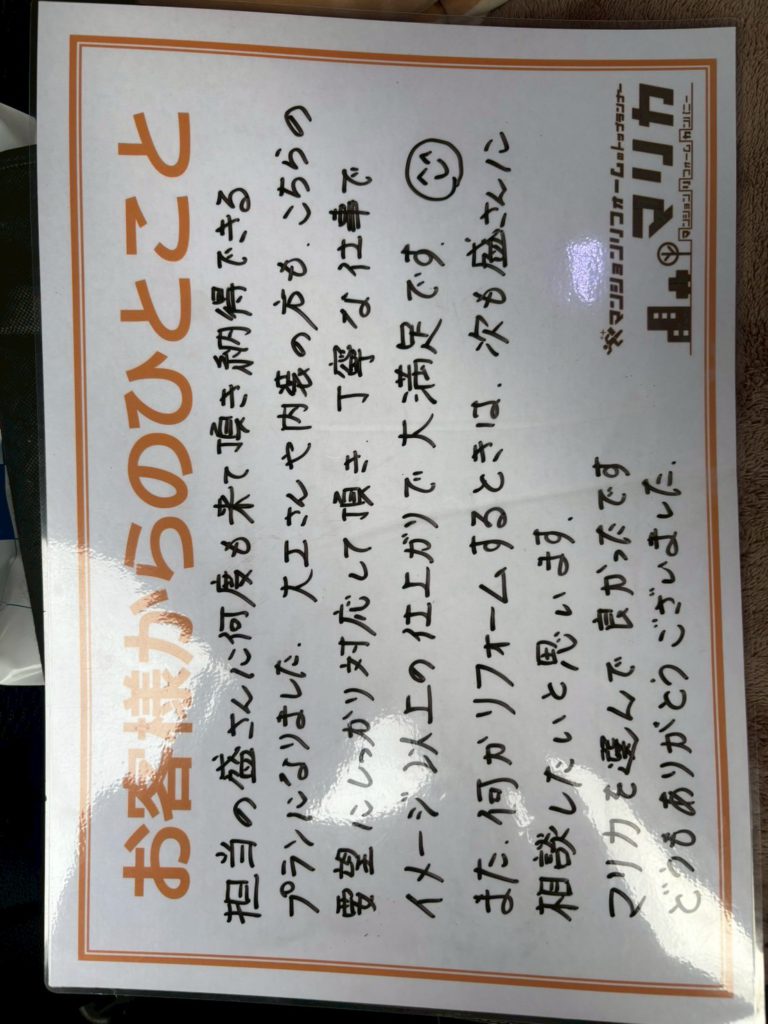 お客様からのひとこと
担当の盛さんに何度も来て頂き納得できる
プランになりました。大工さんや内装の方も、こちらの
要望にしっかり対応して頂き、丁寧な仕事で
イメージ以上の仕上ガリで大満足です。
また、何かリフォームするときは、次も盛さんに
相談したいと思います。
マリカを選んで良かったです
どうもありがとうございました。
マンションリフォームのトップランナー
マリカ
マンションリフォームカンパニー